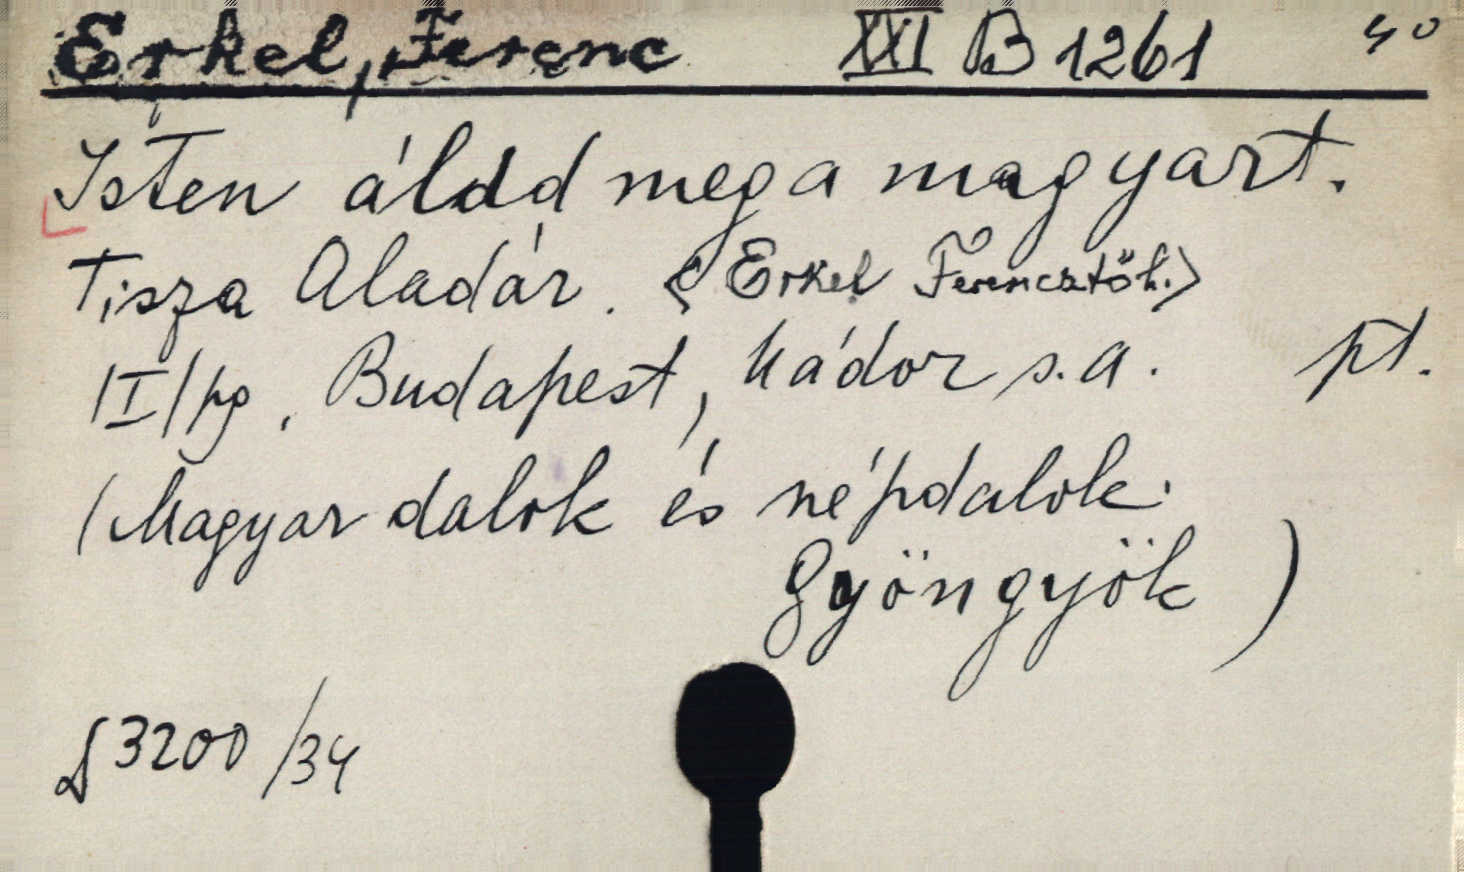 Erkel, Ferenc XXI B 1261 40
Isten áldd meg a magyart.
Tisza Aladár. <Erkel Ferencztől.>
|I|pg. Budapest, Nádor s.a. pt.
(Magyar dalok és népdalok.
Gyöngyök)
3200/34